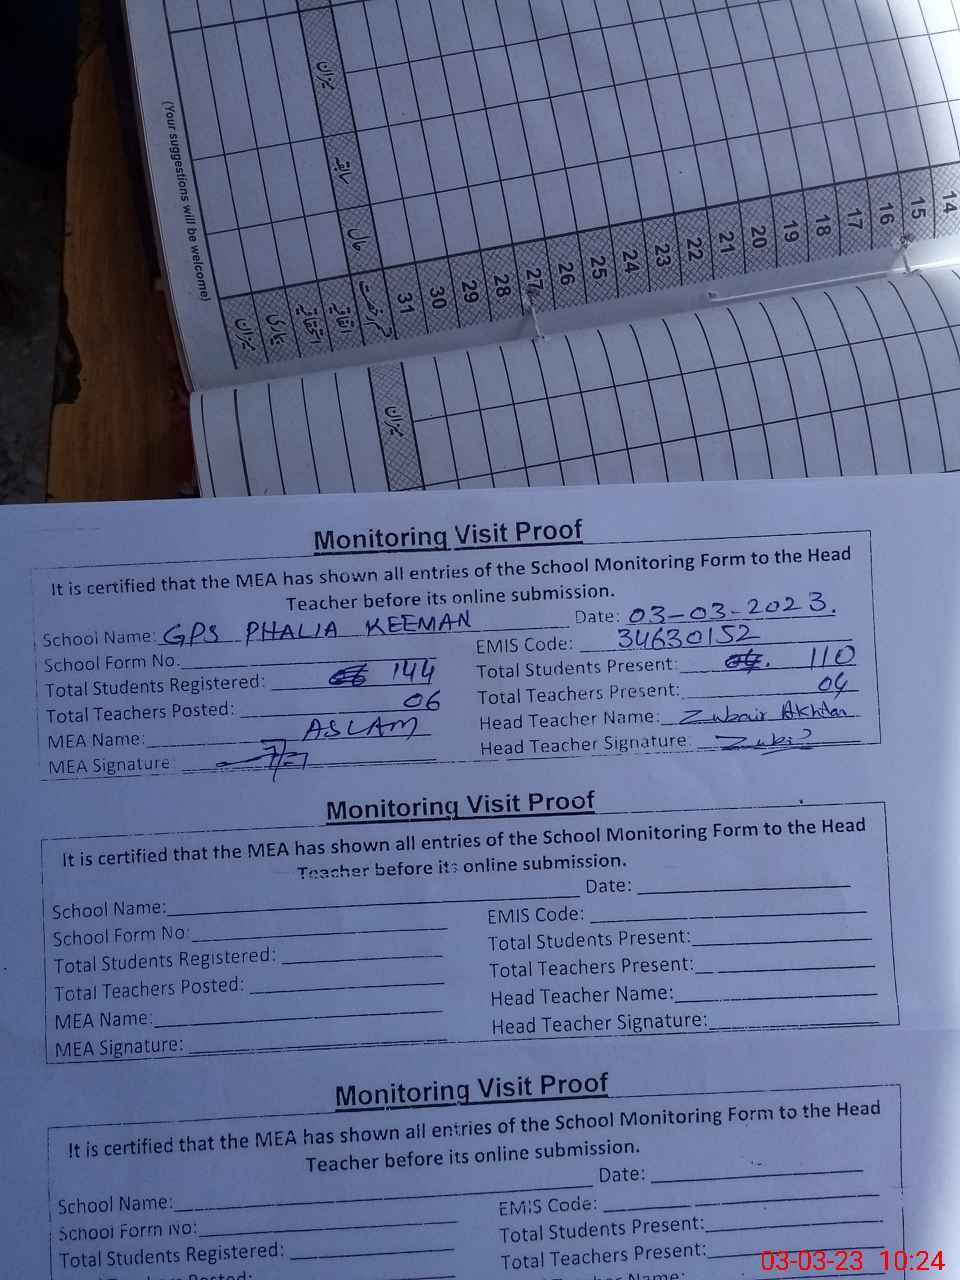 میزان
سابقہ
حال
(Your suggestions will be welcome)
14
15
16
17
18
19
20
21
22
23
24
25
26
27
28
29
30
31
اتفاقیہ
استحقاقیہ
بیماری
میزان
میزان
Monitoring Visit Proof
It is certified that the MEA has shown all entries of the School Monitoring Form to the Head
Teacher before its online submission.
School Name: GPS PHALIA KEEMAN Date: 03-03-2023.
School Form No. EMIS Code: 34630152
Total Students Registered: 144 Total Students Present: 110
Total Teachers Posted: 06 Total Teachers Present: 04
MEA Name: ASLAM Head Teacher Name: Zubair Akhtar
MEA Signature: Head Teacher Signature: Zubair
Monitoring Visit Proof
It is certified that the MEA has shown all entries of the School Monitoring Form to the Head
Teacher before its online submission.
School Name: Date:
School Form No: EMIS Code:
Total Students Registered: Total Students Present:
Total Teachers Posted: Total Teachers Present:
MEA Name: Head Teacher Name:
MEA Signature: Head Teacher Signature:
Monitoring Visit Proof
It is certified that the MEA has shown all entries of the School Monitoring Form to the Head
Teacher before its online submission.
School Name: Date:
School Form No: EMIS Code:
Total Students Registered: Total Students Present:
Total Teachers Posted: Total Teachers Present:
Name:
03-03-23 10:24